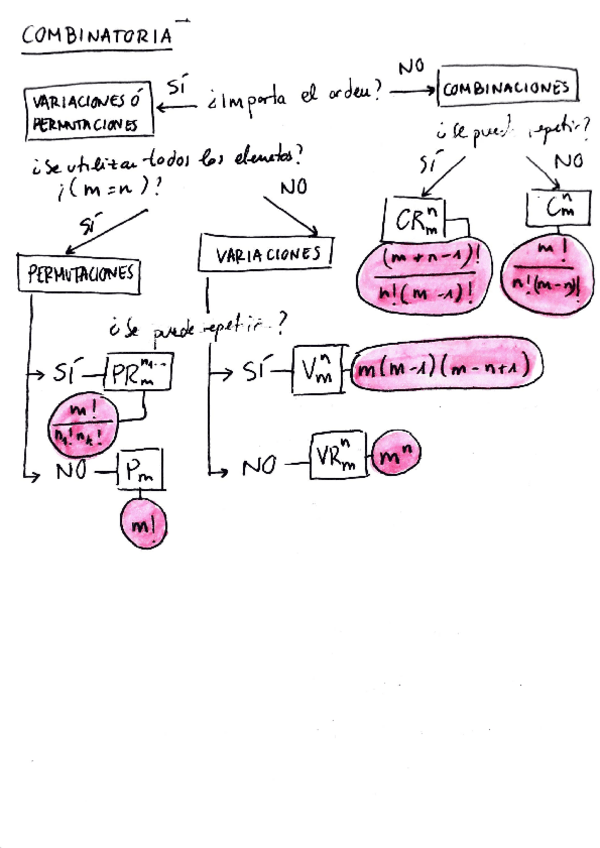 COMBINATORIA
SÍ
NO
VARIACIONES Ó
PERMUTACIONES
¿Importa el orden?
COMBINACIONES
¿Se puede repetir?
¿Se utilizan todos los elementos?
¿(m=n)?
SÍ
NO
SÍ
NO
PERMUTACIONES
VARIACIONES
CR_m^n
C_m^n
(m+n-1)!
n!(m-1)!
m!
n!(m-n)!
¿Se puede repetir?
SÍ
PR_m^{n_1...}
SÍ
V_m^n
m(m-1)(m-n+1)
m!
n_1! n_k!
NO
P_m
NO
VR_m^n
m^n
m!